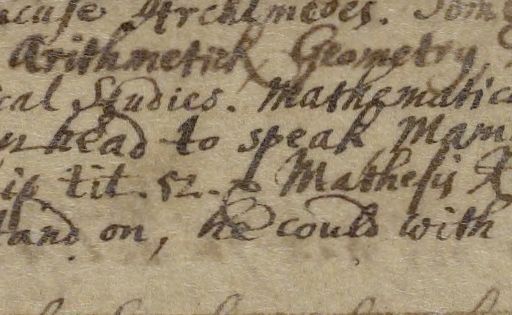 Archimedes. Tom
Arithmetick Geometry
cal Studies. Mathematic
head to speak Mam
tit. 52. Mathesis
and on, he could with